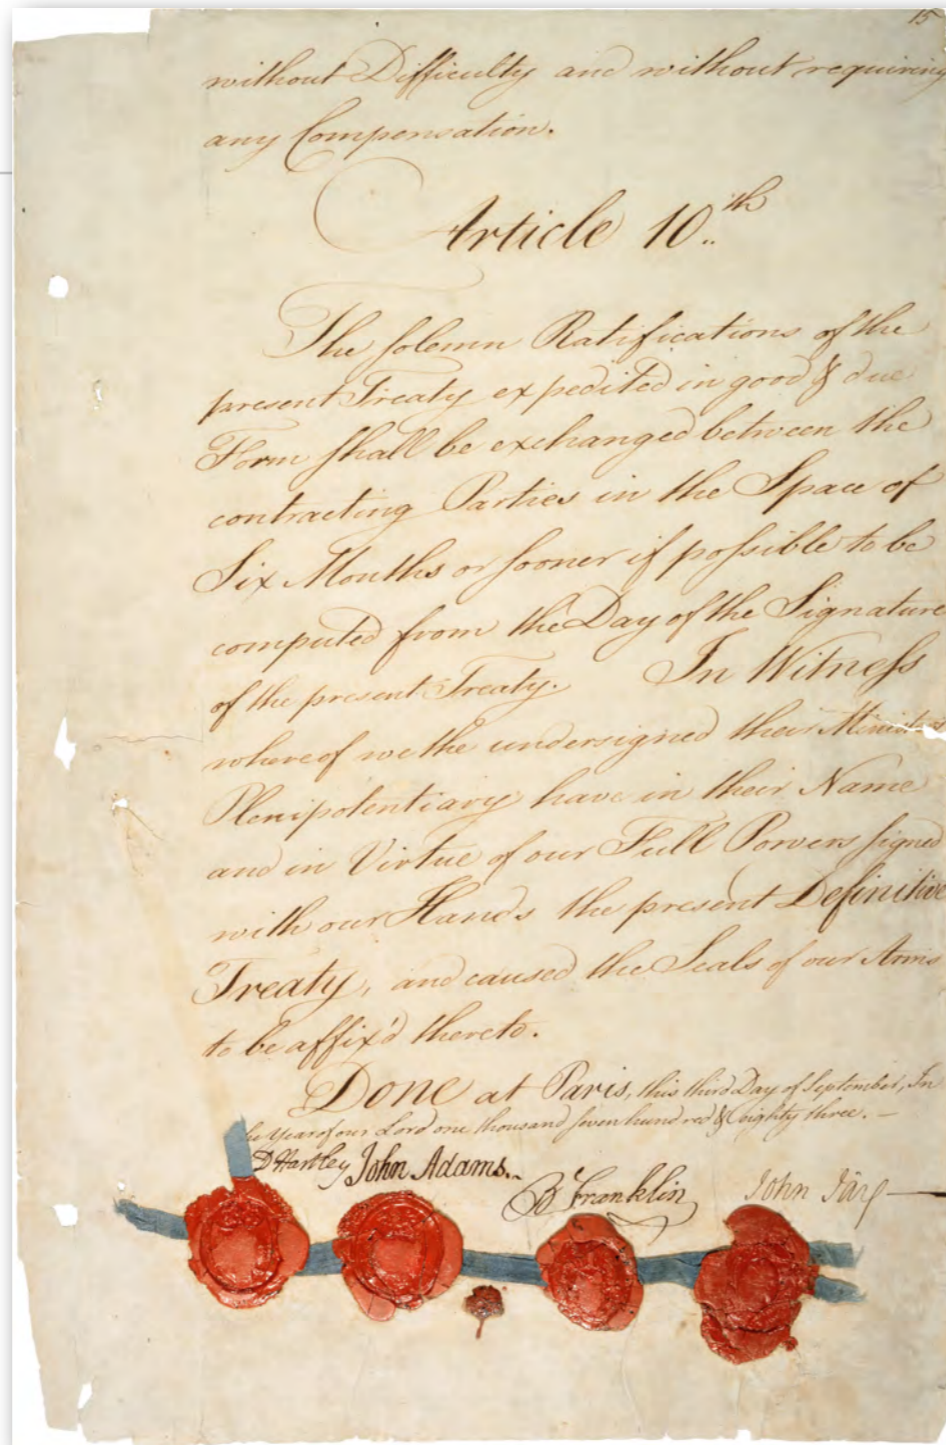 15
without Difficulty and without requiring
any Compensation.
Article 10..th
The solemn Ratifications of the
present Treaty expedited in good & due
Form shall be exchanged between the
contracting Parties in the Space of
Six Months or sooner if possible to be
computed from the Day of the Signature
of the present Treaty. In Witness
whereof we the undersigned their Ministers
Plenipotentiary have in their Name
and in Virtue of our Full Powers signed
with our Hands the present Definitive
Treaty, and caused the Seals of our Arms
to be affix'd thereto.
Done at Paris, this third Day of September, In
the Year of our Lord one thousand seven hundred & eighty three.—
D Hartley John Adams.
B Franklin John Jay—